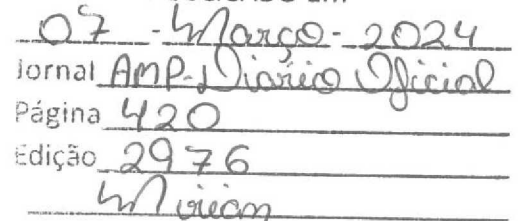 07 - Março - 2024
Jornal AMP - Diário Oficial
Página 420
Edição 2976
Miriam